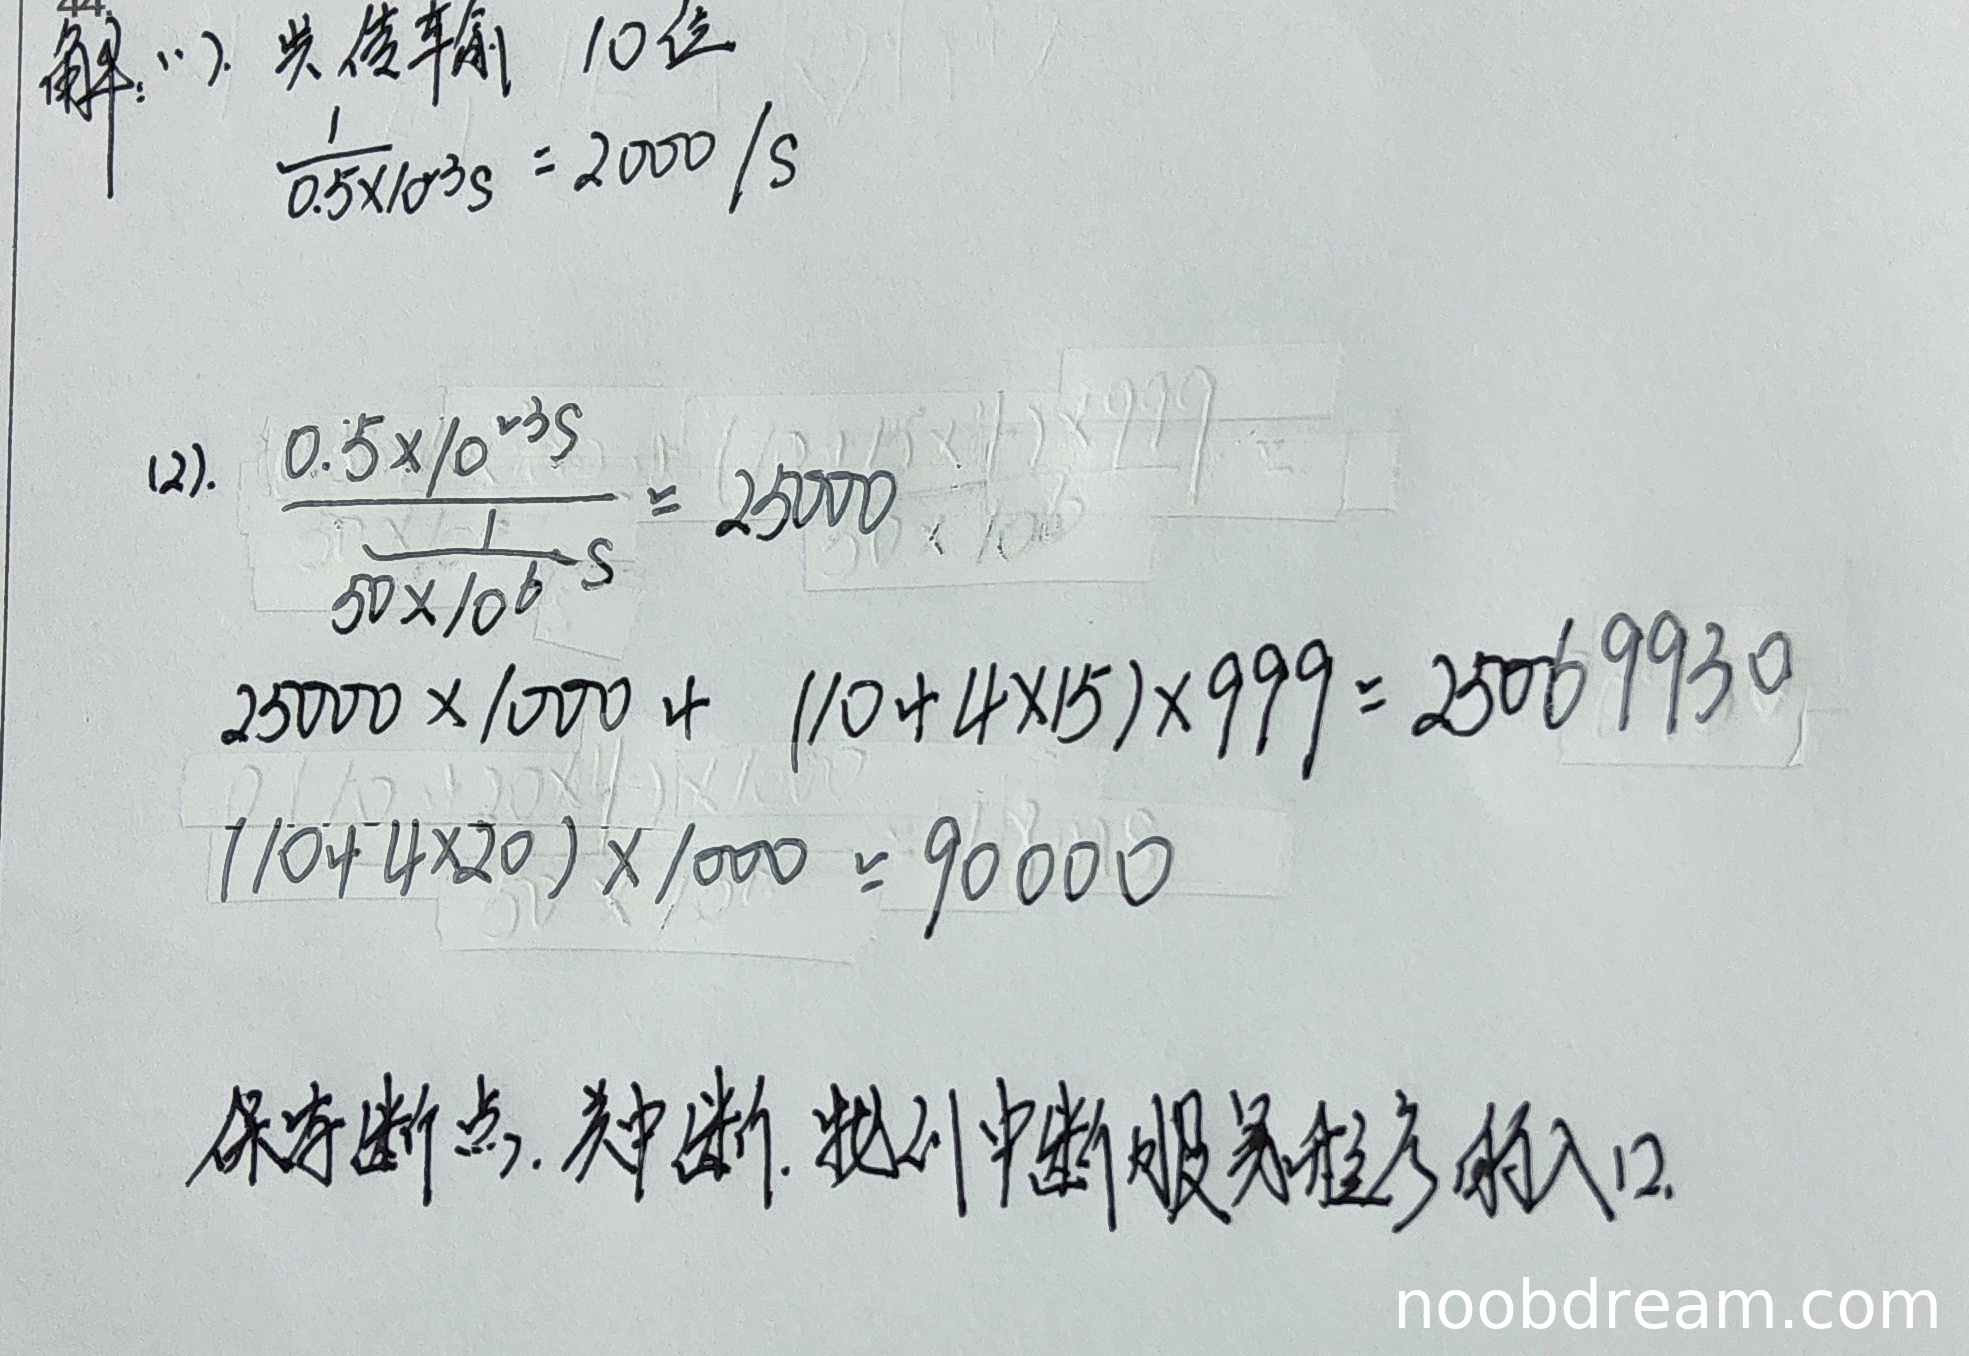 44.
解:(1). 共传输 10位
1/0.5×10^-3s = 2000 /s
(2). 0.5×10^-3s / (1/50×10^6 s) = 25000
25000×1000 + (10+4×15)×999 = 25069930
(10+4×20)×1000 = 90000
保存断点. 关中断. 找到中断服务程序的入口.
noobdream.com